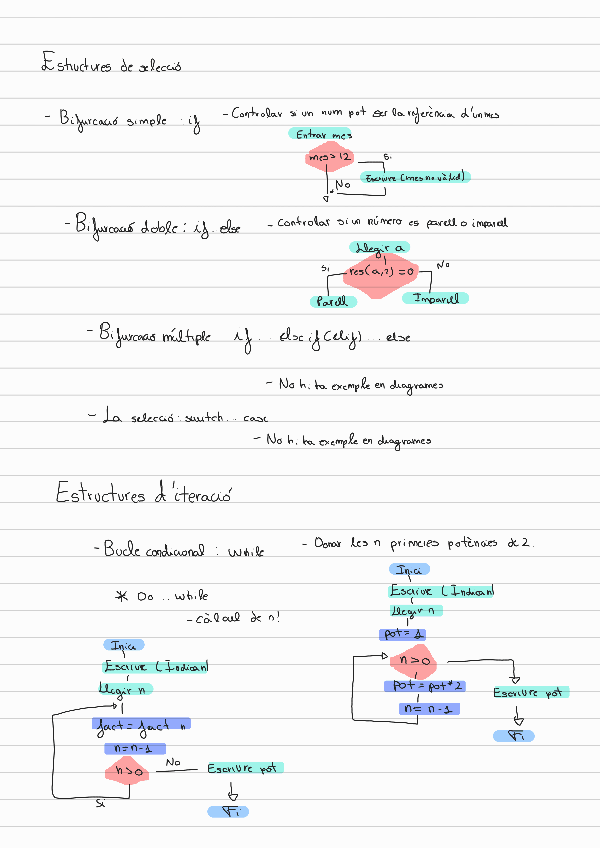 Estructures de selecció
- Bifurcació simple : if
- Controlar si un num pot ser la referència d'un mes
Entrar mes
mes > 12
Si
Escriure (mes no vàlid)
No
- Bifurcació doble : if.. else
- Controlar si un número es parell o imparell
Llegir a
Si
res(a,2) = 0
No
Parell
Imparell
- Bifurcació múltiple if ... else if (elif) ... else
- No hi ha exemple en diagrames
- La selecció : switch... case
- No hi ha exemple en diagrames
Estructures d'iteració
- Bucle condicional : while
- Donar les n primeres potències de 2.
Inici
Escriue (Indican)
Llegir n
pot = 1
n > 0
pot = pot * 2
n = n - 1
Escriure pot
Fi
* Do .. while
- càlcul de n!
Inici
Escriue (Indican)
Llegir n
fact = fact n
n = n - 1
n > 0
No
Escriure pot
Si
Fi